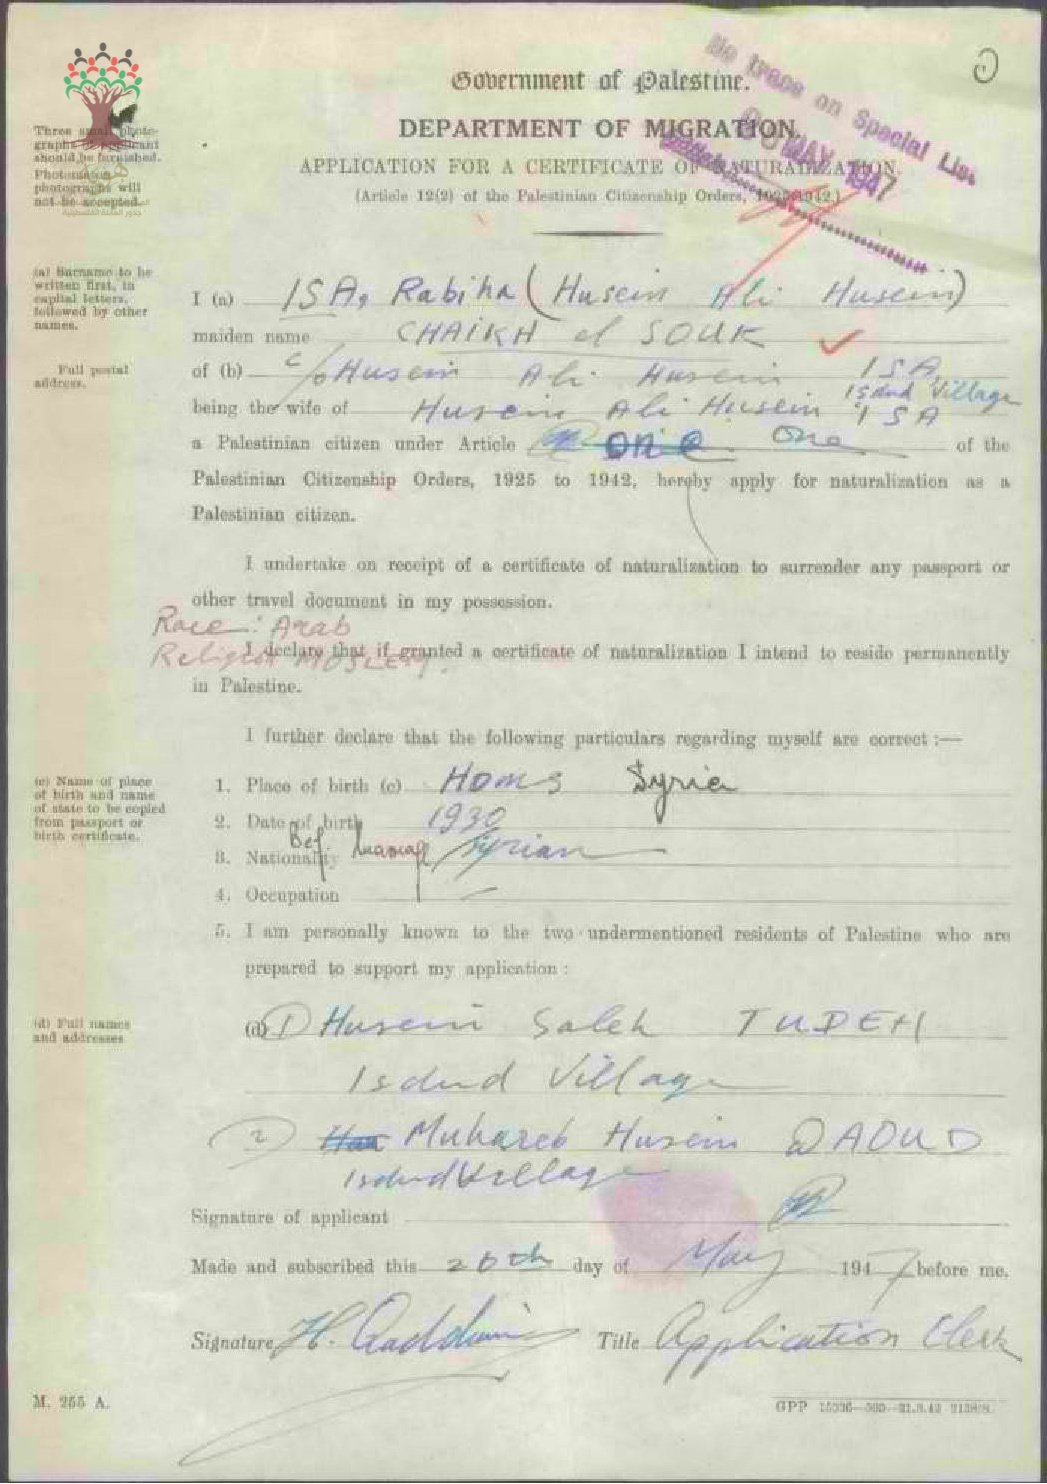 No trace on Special List
MAY 1947
Government of Palestine.
DEPARTMENT OF MIGRATION.
APPLICATION FOR A CERTIFICATE OF NATURALIZATION.
(Article 12(2) of the Palestinian Citizenship Orders, 1925-1942.)
Three small photo-
graphs of applicant
should be furnished.
Photomaton
photographs will
not be accepted.
(a) Surname to be
written first, in
capital letters,
followed by other
names.
I (a) ISA, Rabiha (Husein Ali Husein)
maiden name CHAIKH el SOUK
Full postal
address.
of (b) c/o Husein Ali Husein ISA
Isdud Village
being the wife of Husein Ali Husein ISA
a Palestinian citizen under Article one One of the
Palestinian Citizenship Orders, 1925 to 1942, hereby apply for naturalization as a
Palestinian citizen.
I undertake on receipt of a certificate of naturalization to surrender any passport or
other travel document in my possession.
Race: Arab
Religion MOSLEM.
I declare that if granted a certificate of naturalization I intend to reside permanently
in Palestine.
I further declare that the following particulars regarding myself are correct :—
(c) Name of place
of birth and name
of state to be copied
from passport or
birth certificate.
1. Place of birth (c) Homs Syria
2. Date of birth 1930
3. Nationality Bef marriage Syrian
4. Occupation
5. I am personally known to the two undermentioned residents of Palestine who are
prepared to support my application :
(d) Full names
and addresses
(d) 1) Husein Saleh TUDEH
Isdud Village
2) Muhareb Husein DAOUD
Isdud Village
Signature of applicant
Made and subscribed this 20th day of May 1947 before me.
Signature H. Title Application Clerk
M. 255 A.
GPP